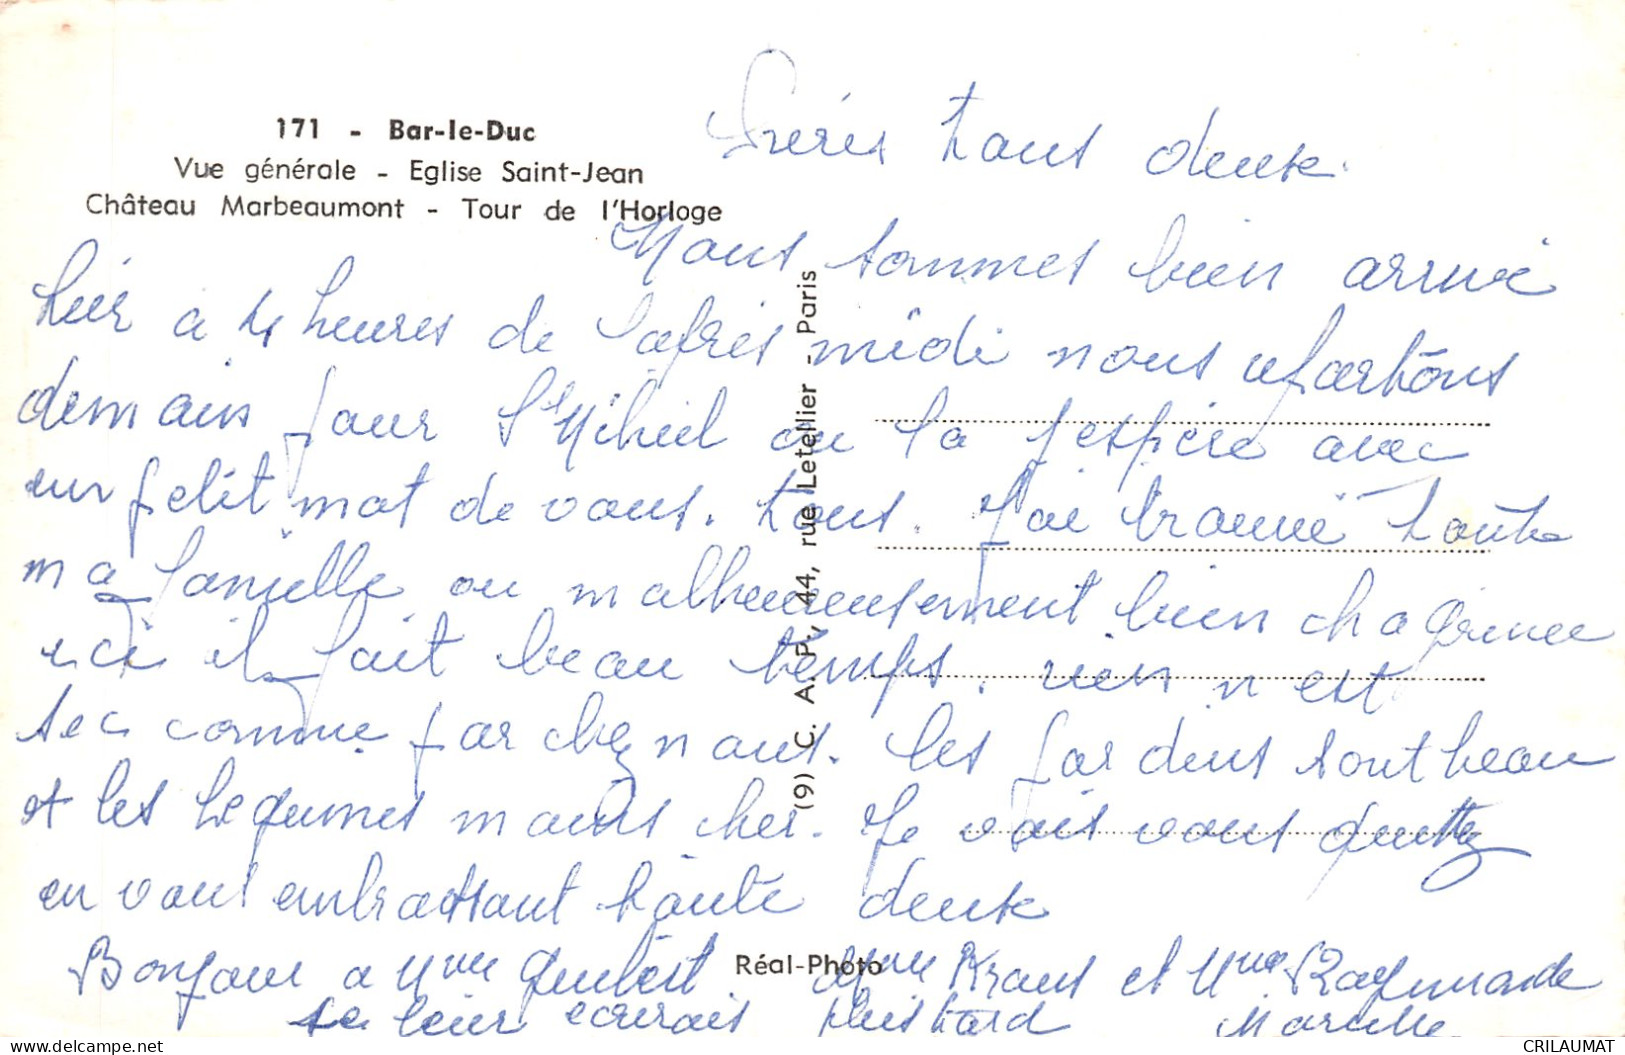 171 - Bar-le-Duc
Vue générale - Eglise Saint-Jean
Château Marbeaumont - Tour de l'Horloge
tous deux.
Nous sommes bien arrivé
hier à 4 heures de l'après midi nous repartons
demain pour St Mihiel ou la j'espère avec
un petit mot de vous. tous. J'ai trouvé toute
ma famille ou malheureusement bien chagrinee
ici il fait beau temps. rien n est
sec comme par chez nous. les jardens sont beau
et les legumes moins cher. Je vais vous quittez
en vous embrassant toute deux
Bonjour a Mme Mme Kraus et Mme Raymonde
je leur ecrirais plus tard Marcelle
(9) C. A. P., 44, rue Letellier - Paris
Réal-Photo
CRILAUMAT
www.delcampe.net